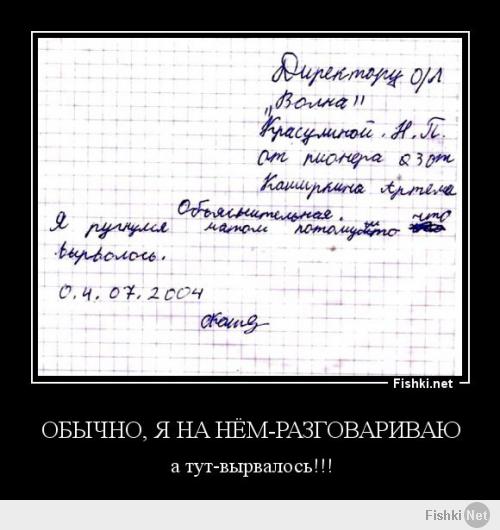 Директору О/Л
"Волна"
Красулиной. Н. П.
от пионера 23 от
Каширкина Артема
Объяснительная.
Я ругнулся матом потому что
вырволось.
0.4.07.2004
Fishki.net
ОБЫЧНО, Я НА НЁМ-РАЗГОВАРИВАЮ
а тут-вырвалось!!!
Fishki Net